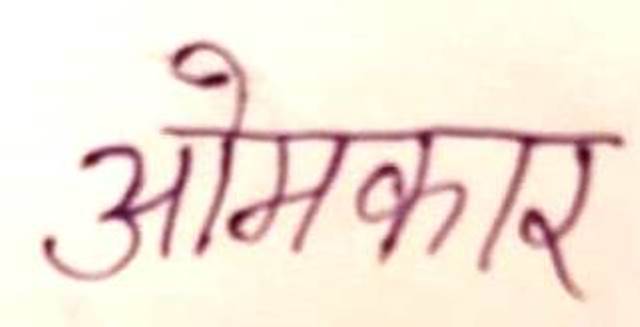 ओमकार